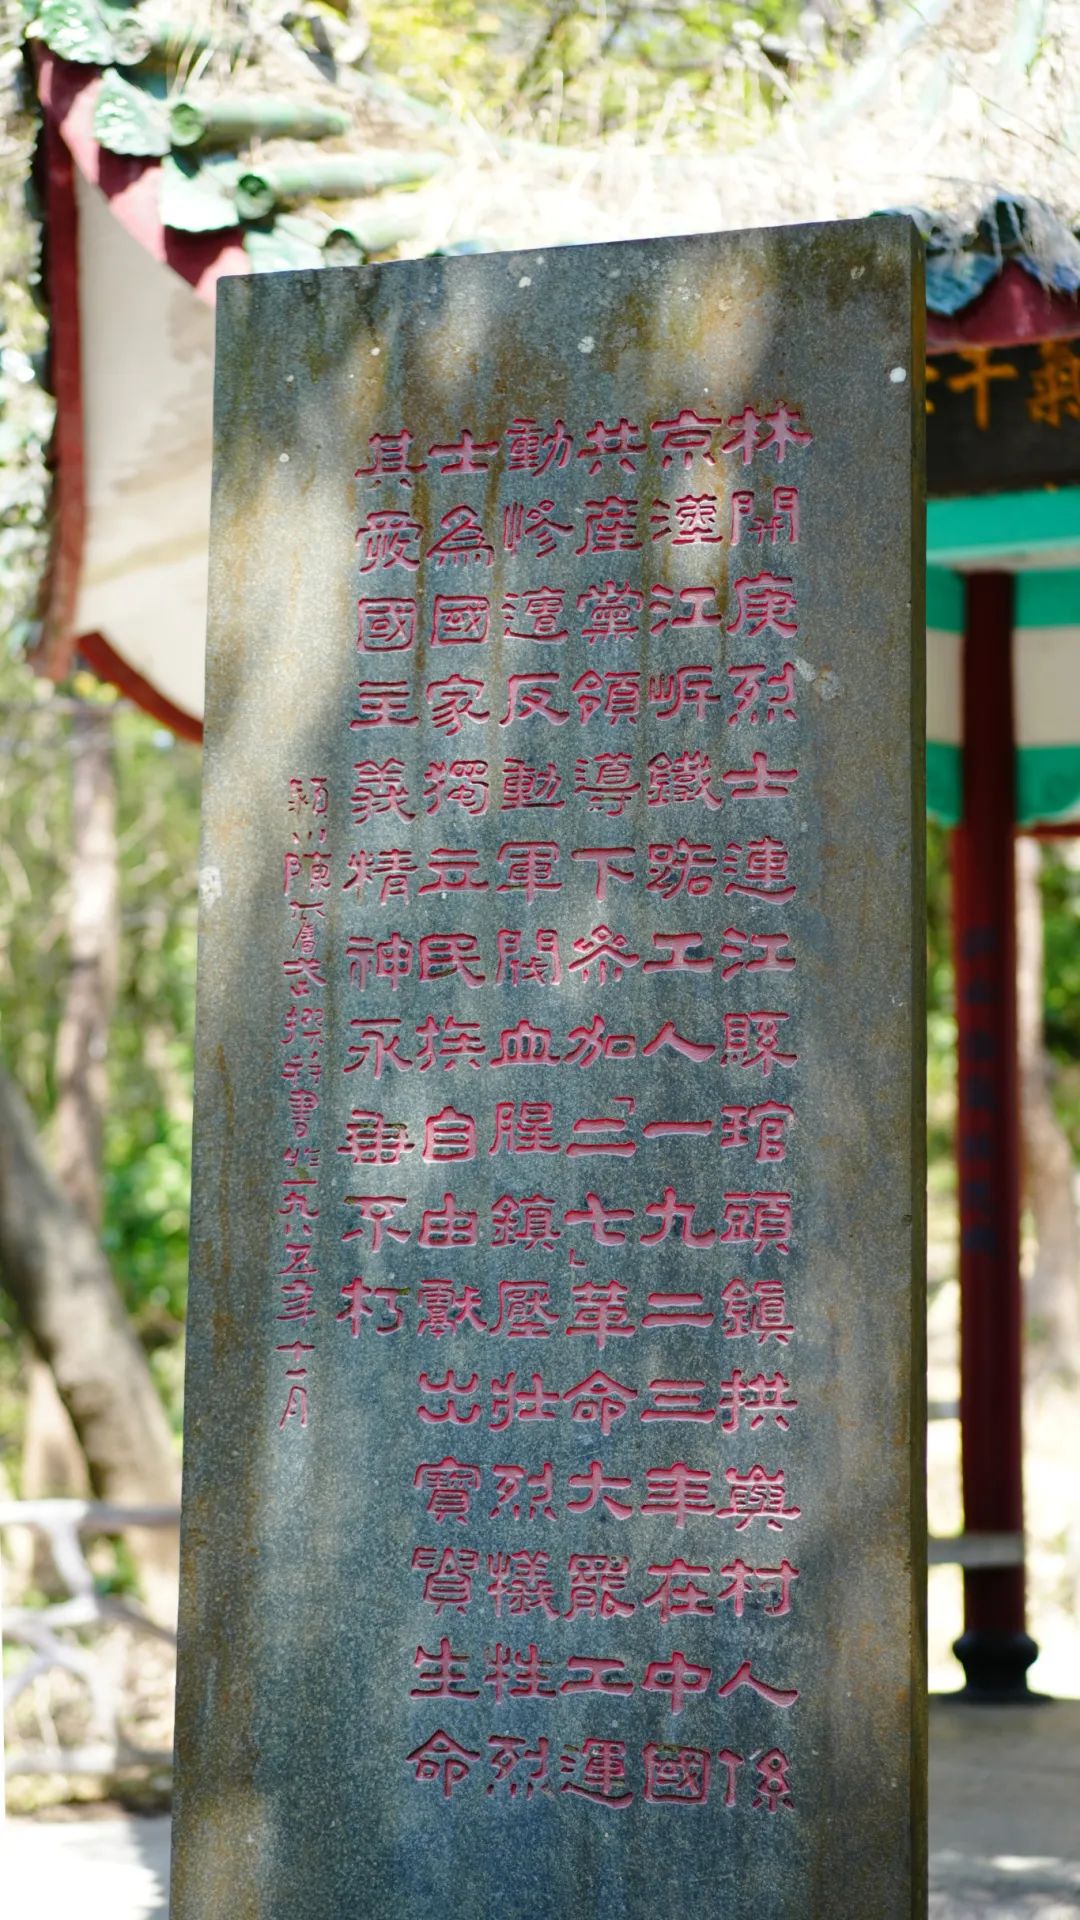 林開庚烈士連江縣琯頭鎮拱嶼村人係
京漢江岸鐵路工人一九二三年在中國
共産黨領導下參加「二七」革命大罷工運
動慘遭反動軍閥血腥鎮壓壯烈犧牲烈
士為國家獨立民族自由獻出寶貴生命
其愛國主義精神永垂不朽
潁川陳奮武撰并書於一九八五年十一月
千